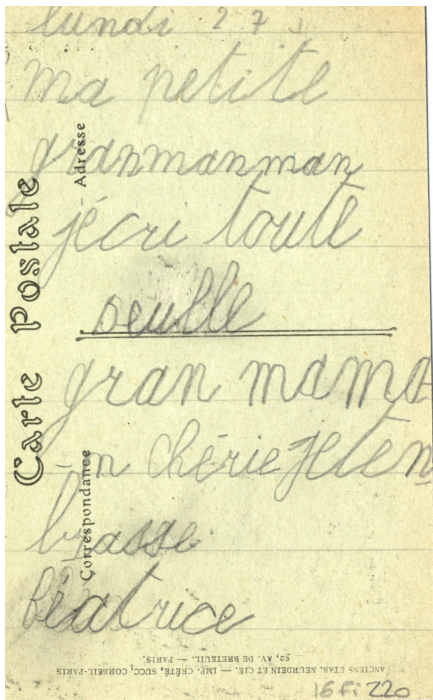 lundi 27
ma petite
granmanman
jécri toute
seulle
gran mama
-n chérie jetèn
brasse
béatrice
Carte Postale
Adresse
Correspondance
ANCIENS ETAB. NEURDEIN ET CIE. — IMP. CRÉTÉ, SUCC, CORBEIL-PARIS
52, AV. DE BRETEUIL. — PARIS.
6 Fi 220